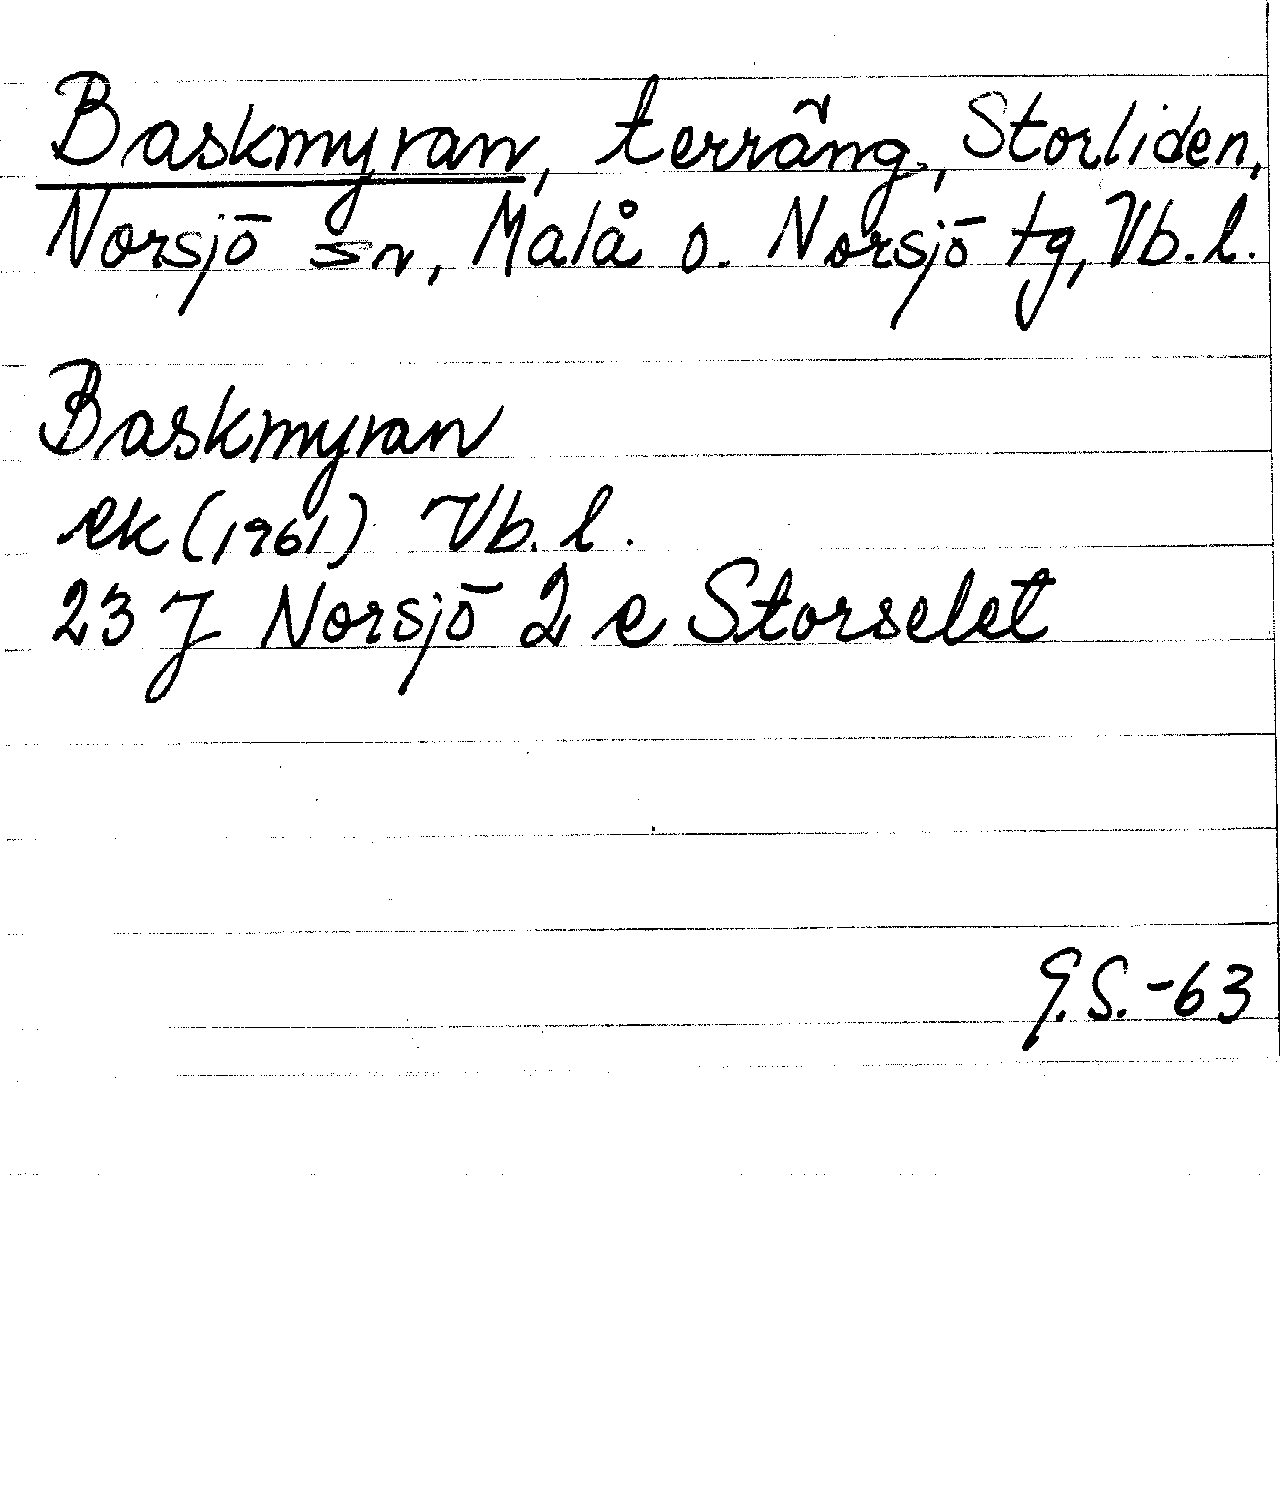 Baskmyran, terräng, Storliden,
Norsjö sn, Malå o. Norsjö tg, Vb. l.
Baskmyran
ek (1961) Vb. l.
23 J Norsjö 2 e Storselet
G.S.-63